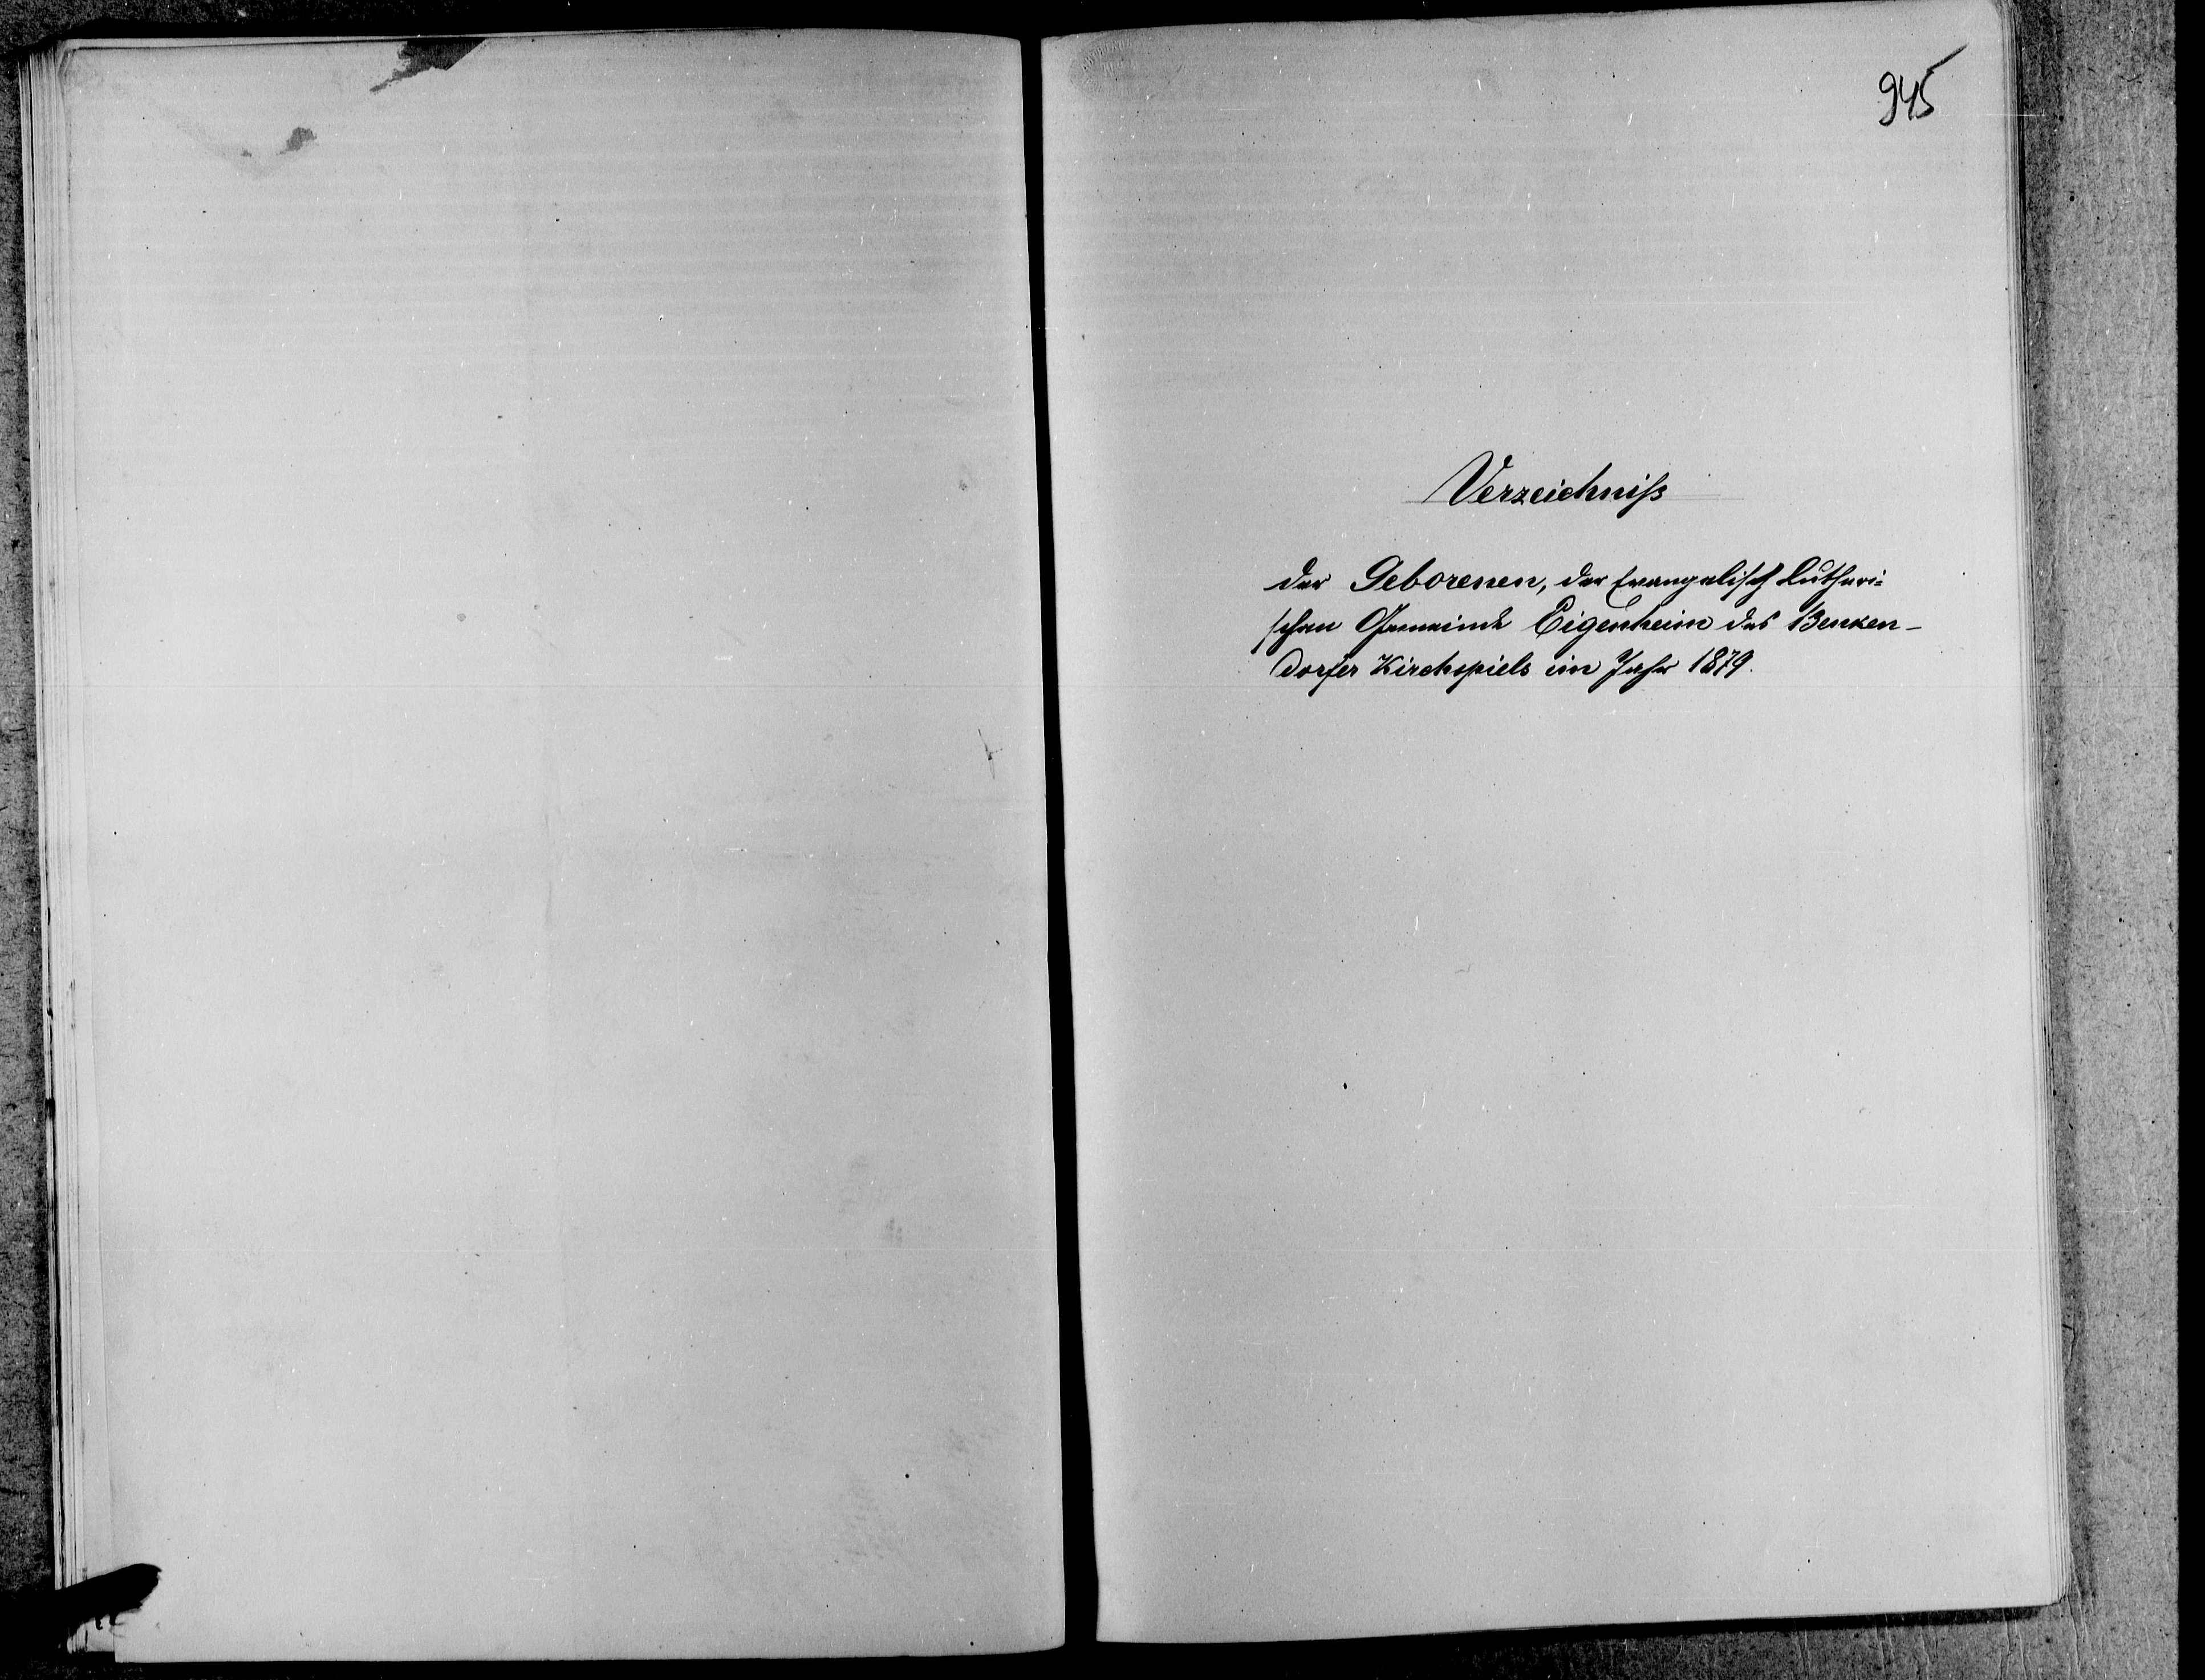 945
Verzeichniß
der Geborenen, der Evangelisch Lutheri=
schen Gemeinde Eigenheim des Benken-
dorfer Kirchspiels im Jahr 1879.